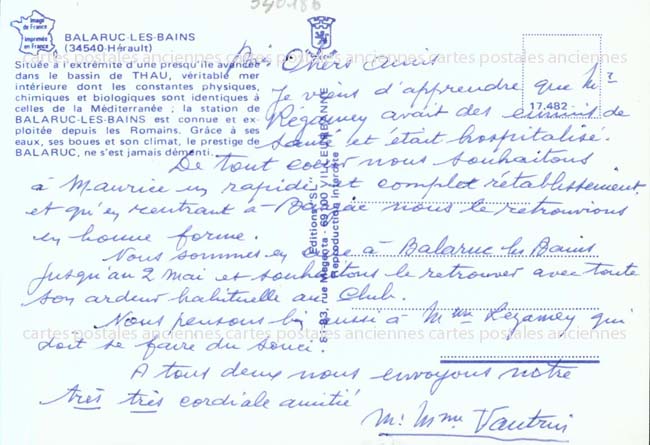 540186
Image
de France
imprimée
en France
BALARUC-LES-BAINS
(34540-Hérault)
Située à l'extrémité d'une presqu'île avancée
dans le bassin de THAU, véritable mer
intérieure dont les constantes physiques,
chimiques et biologiques sont identiques à
celles de la Méditerranée ; la station de
BALARUC-LES-BAINS est connue et ex-
ploitée depuis les Romains. Grâce à ses
eaux, ses boues et son climat, le prestige de
BALARUC, ne s'est jamais démenti.
17.482
Chers Amis
Je viens d'apprendre que Mr
Régamey avait des ennuis de
santé et était hospitalisé.
De tout coeur nous souhaitons
à Maurice un rapide et complet rétablissement
et qu'en rentrant à nous le retrouvions
en bonne forme.
Nous sommes en cure à Balaruc les Bains
jusqu'au 2 Mai et souhaitons le retrouver avec toute
son ardeur habituelle au Club.
Nous pensons bien aussi à Mme Régamey qui
doit se faire du souci.
A tous deux nous envoyons notre
très très cordiale amitié
Mr Mme Vautrin
Editions "SL"
83, rue Magenta 69100 VILLEURBANNE
Reproduction interdite
cartes postales anciennes cartes postales anciennes
cartes postales anciennes cartes postales anciennes
cartes postales anciennes cartes postales anciennes